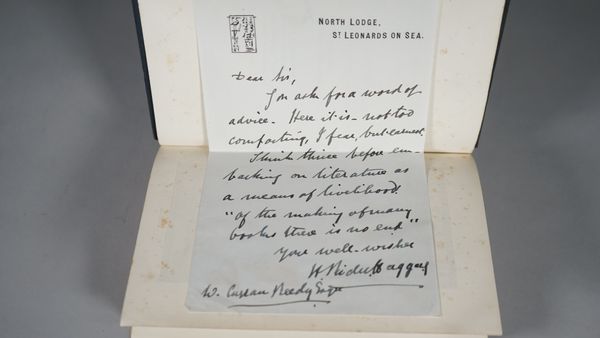 NORTH LODGE,
ST LEONARDS ON SEA.
Dear Sir,
You ask for a word of
advice. Here it is - not too
comforting, I fear, but earnest.
Think thrice before em-
barking on literature as
a means of livelihood.
"Of the making of many
books there is no end"
Your well-wisher
H. Rider Haggard
W. Curran Reedy Esqre